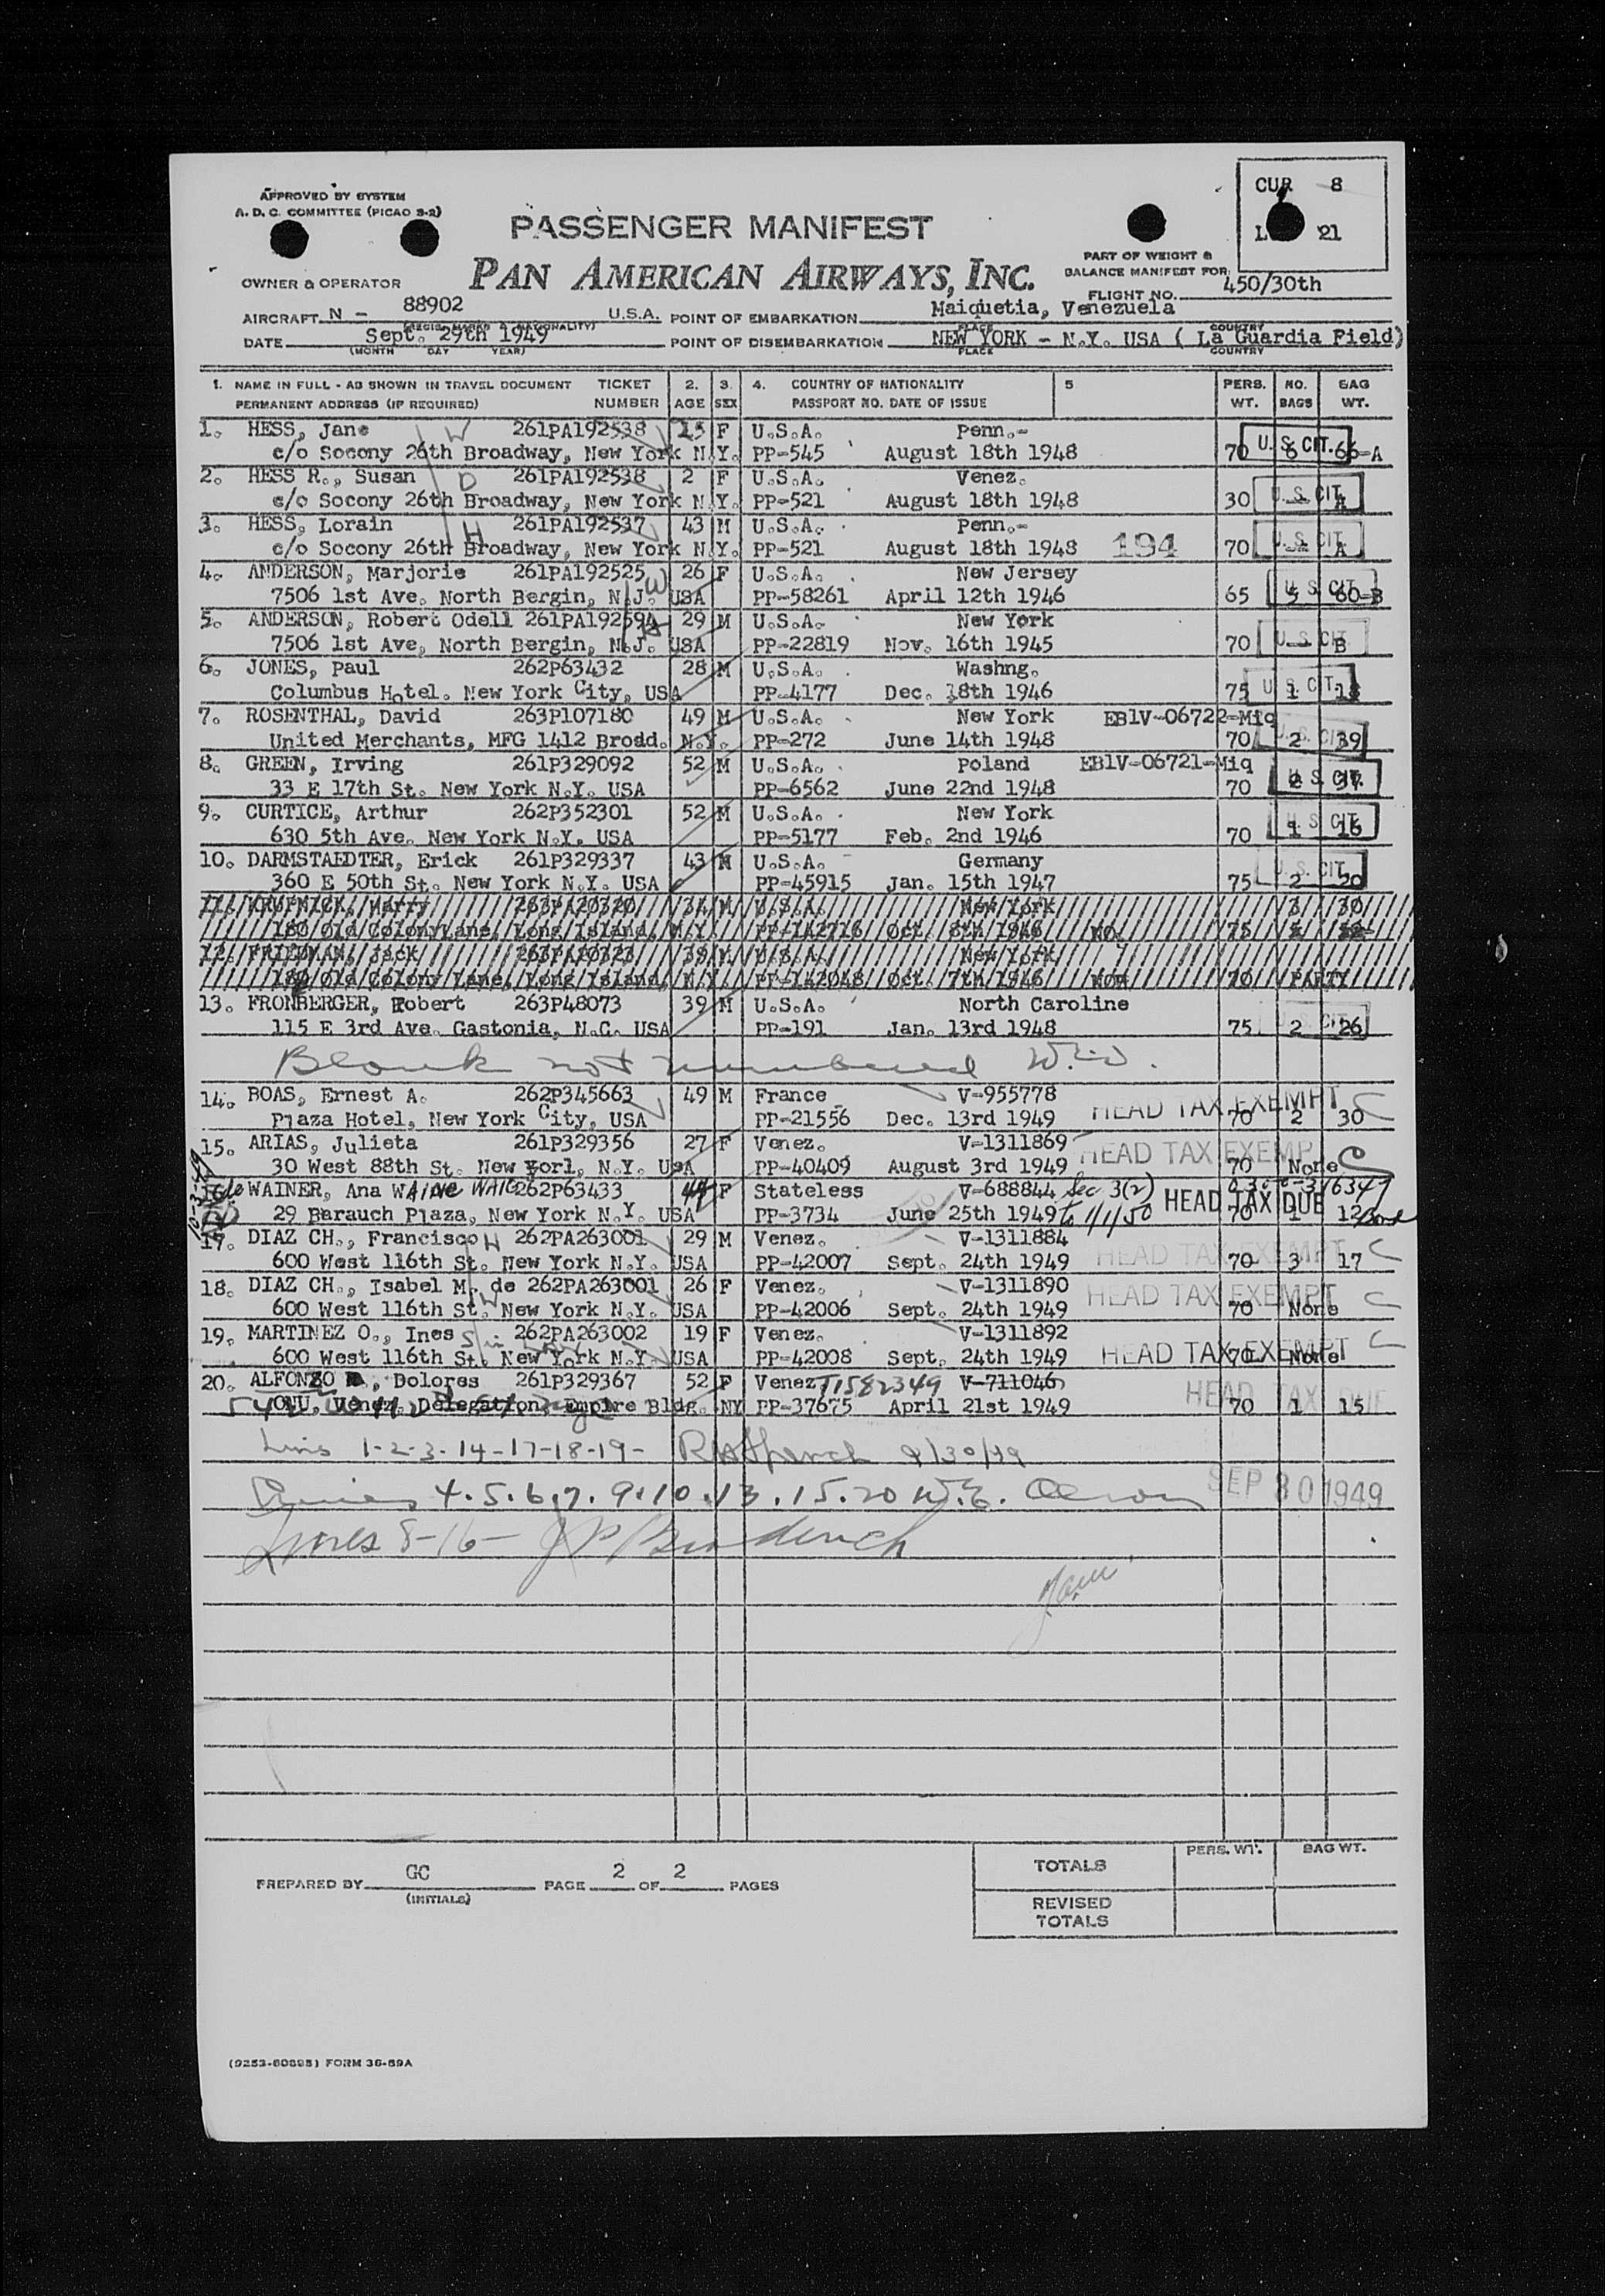 APPROVED BY SYSTEM
A. D. C. COMMITTEE (PICAO S-2)
CUR 8
21
PASSENGER MANIFEST
PAN AMERICAN AIRWAYS, INC.
OWNER & OPERATOR
PART OF WEIGHT &
BALANCE MANIFEST FOR:
FLIGHT NO. 450/30th
AIRCRAFT N - 88902 U.S.A. POINT OF EMBARKATION Maiquetia, Venezuela
(REGIS. MARKS & NATIONALITY) PLACE COUNTRY
DATE Sept. 29th 1949 POINT OF DISEMBARKATION NEW YORK - N.Y. USA ( La Guardia Field)
(MONTH DAY YEAR) PLACE COUNTRY
1. NAME IN FULL - AS SHOWN IN TRAVEL DOCUMENT TICKET 2. 3. 4. COUNTRY OF NATIONALITY 5 PERS. NO. BAG
PERMANENT ADDRESS (IF REQUIRED) NUMBER AGE SEX PASSPORT NO. DATE OF ISSUE WT. BAGS WT.
1. HESS, Jane W 261PA192538 F U.S.A. Penn.-
c/o Socony 26th Broadway, New York N.Y. PP-545 August 18th 1948 70 U.S. CIT. 6 66-A
2. HESS R., Susan D 261PA192538 2 F U.S.A. Venez.
c/o Socony 26th Broadway, New York N.Y. PP-521 August 18th 1948 30 U.S. CIT. A
3. HESS, Lorain H 261PA192537 43 M U.S.A. Penn.-
c/o Socony 26th Broadway, New York N.Y. PP-521 August 18th 1948 194 70 U.S. CIT. A
4. ANDERSON, Marjorie 261PA192525 W 26 F U.S.A. New Jersey
7506 1st Ave. North Bergin, N.J. USA PP-58261 April 12th 1946 65 U.S. CIT. 5 60-B
5. ANDERSON, Robert Odell 261PA192594 H 29 M U.S.A. New York
7506 1st Ave, North Bergin, N.J. USA PP-22819 Nov. 16th 1945 70 U.S. CIT. B
6. JONES, Paul 262P63432 28 M U.S.A. Washng.
Columbus Hotel. New York City, USA PP-4177 Dec. 18th 1946 75 U.S. CIT. 1 18
7. ROSENTHAL, David 263P107180 49 M U.S.A. New York EB1V-06722-Miq
United Merchants, MFG 1412 Brodd. N.Y. PP-272 June 14th 1948 70 U.S. CIT. 2 39
8. GREEN, Irving 261P329092 52 M U.S.A. Poland EB1V-06721-Miq
33 E 17th St. New York N.Y. USA PP-6562 June 22nd 1948 70 U.S. CIT. 2 37
9. CURTICE, Arthur 262P352301 52 M U.S.A. New York
630 5th Ave. New York N.Y. USA PP-5177 Feb. 2nd 1946 70 U.S. CIT. 1 16
10. DARMSTAEDTER, Erick 261P329337 43 M U.S.A. Germany
360 E 50th St. New York N.Y. USA PP-45915 Jan. 15th 1947 75 U.S. CIT. 2 20
11. KRUPNICK, Harry 263PA20320 34 M U.S.A. New York 3 30
180 Old Colony Lane, Long Island, N.Y. PP-142716 Oct. 8th 1946 NO 75
12. FRIEDMAN, Jack 263PA20323 39 M U.S.A. New York
180 Old Colony Lane, Long Island, N.Y. PP-142048 Oct. 7th 1946 70 PARTY
13. FRONBERGER, Robert 263P48073 39 M U.S.A. North Caroline
115 E 3rd Ave. Gastonia, N.C. USA PP-191 Jan. 13rd 1948 75 2 CIT. 26
Blank not numbered
14. BOAS, Ernest A. 262P345663 49 M France V-955778
Plaza Hotel, New York City, USA PP-21556 Dec. 13rd 1949 HEAD TAX EXEMPT 70 2 30
15. ARIAS, Julieta 261P329356 27 F Venez. V-1311869
30 West 88th St. New Yorl, N.Y. USA PP-40409 August 3rd 1949 HEAD TAX EXEMP 70 None
10-3-49
16. de WAINER, Ana WAINE 262P63433 44 F Stateless V-688844 Sec 3(2)
29 Barauch Plaza, New York N.Y. USA PP-3734 June 25th 1949 to 1/1/50 HEAD TAX DUE 70 1 12 Bond
17. DIAZ CH., Francisco H 262PA263001 29 M Venez. V-1311884
600 West 116th St. New York N.Y. USA PP-42007 Sept. 24th 1949 HEAD TAX EXEMPT 70 3 17
18. DIAZ CH., Isabel M. de 262PA263001 26 F Venez. V-1311890
600 West 116th St. New York N.Y. USA PP-42006 Sept. 24th 1949 HEAD TAX EXEMPT 70 None
19. MARTINEZ O., Ines 262PA263002 19 F Venez. V-1311892
600 West 116th St. New York N.Y. USA PP-42008 Sept. 24th 1949 HEAD TAX EXEMPT 70 None
20. ALFONZO , Dolores 261P329367 52 F Venez T1582349 V-711046
ONU. Venez. Delegation, Empire Bldg. NY PP-37675 April 21st 1949 HEAD TAX DUE 70 1 15
1-2-3-14-17-18-19- 9/30/49
4.5.6.7.9.10.13.15.20 SEP 30 1949
Lines 8-16-
PREPARED BY GC PAGE 2 OF 2 PAGES
(INITIALS)
PERS. WT. BAG WT.
TOTALS
REVISED
TOTALS
(9253-60895) FORM 36-69A